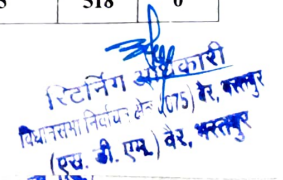 518 0
रिटर्निग अधिकारी
विधानसभा निर्वाचन क्षेत्र (075) वैर, भरतपुर
(एस. डी. एम.) वैर, भरतपुर